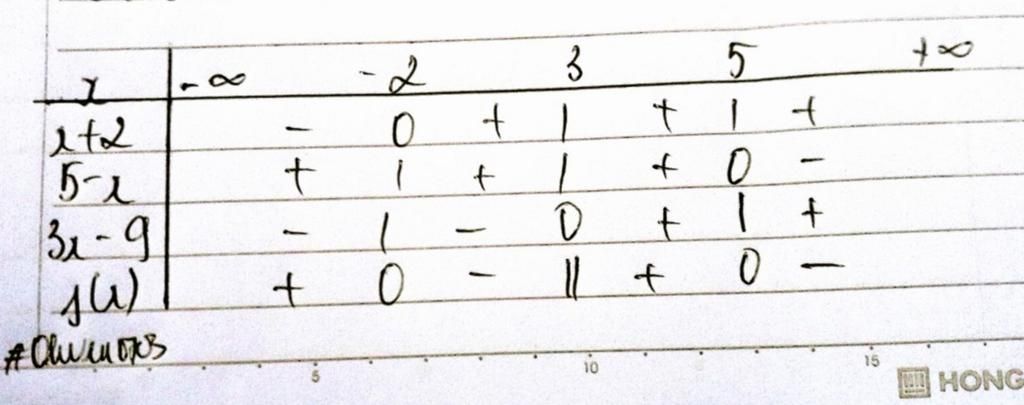 x -∞ -2 3 5 +∞
x+2 - 0 + | + | +
5-x + | + | + 0 -
3x-9 - | - 0 + | +
f(x) + 0 - || + 0 -
5 10 15
HONG